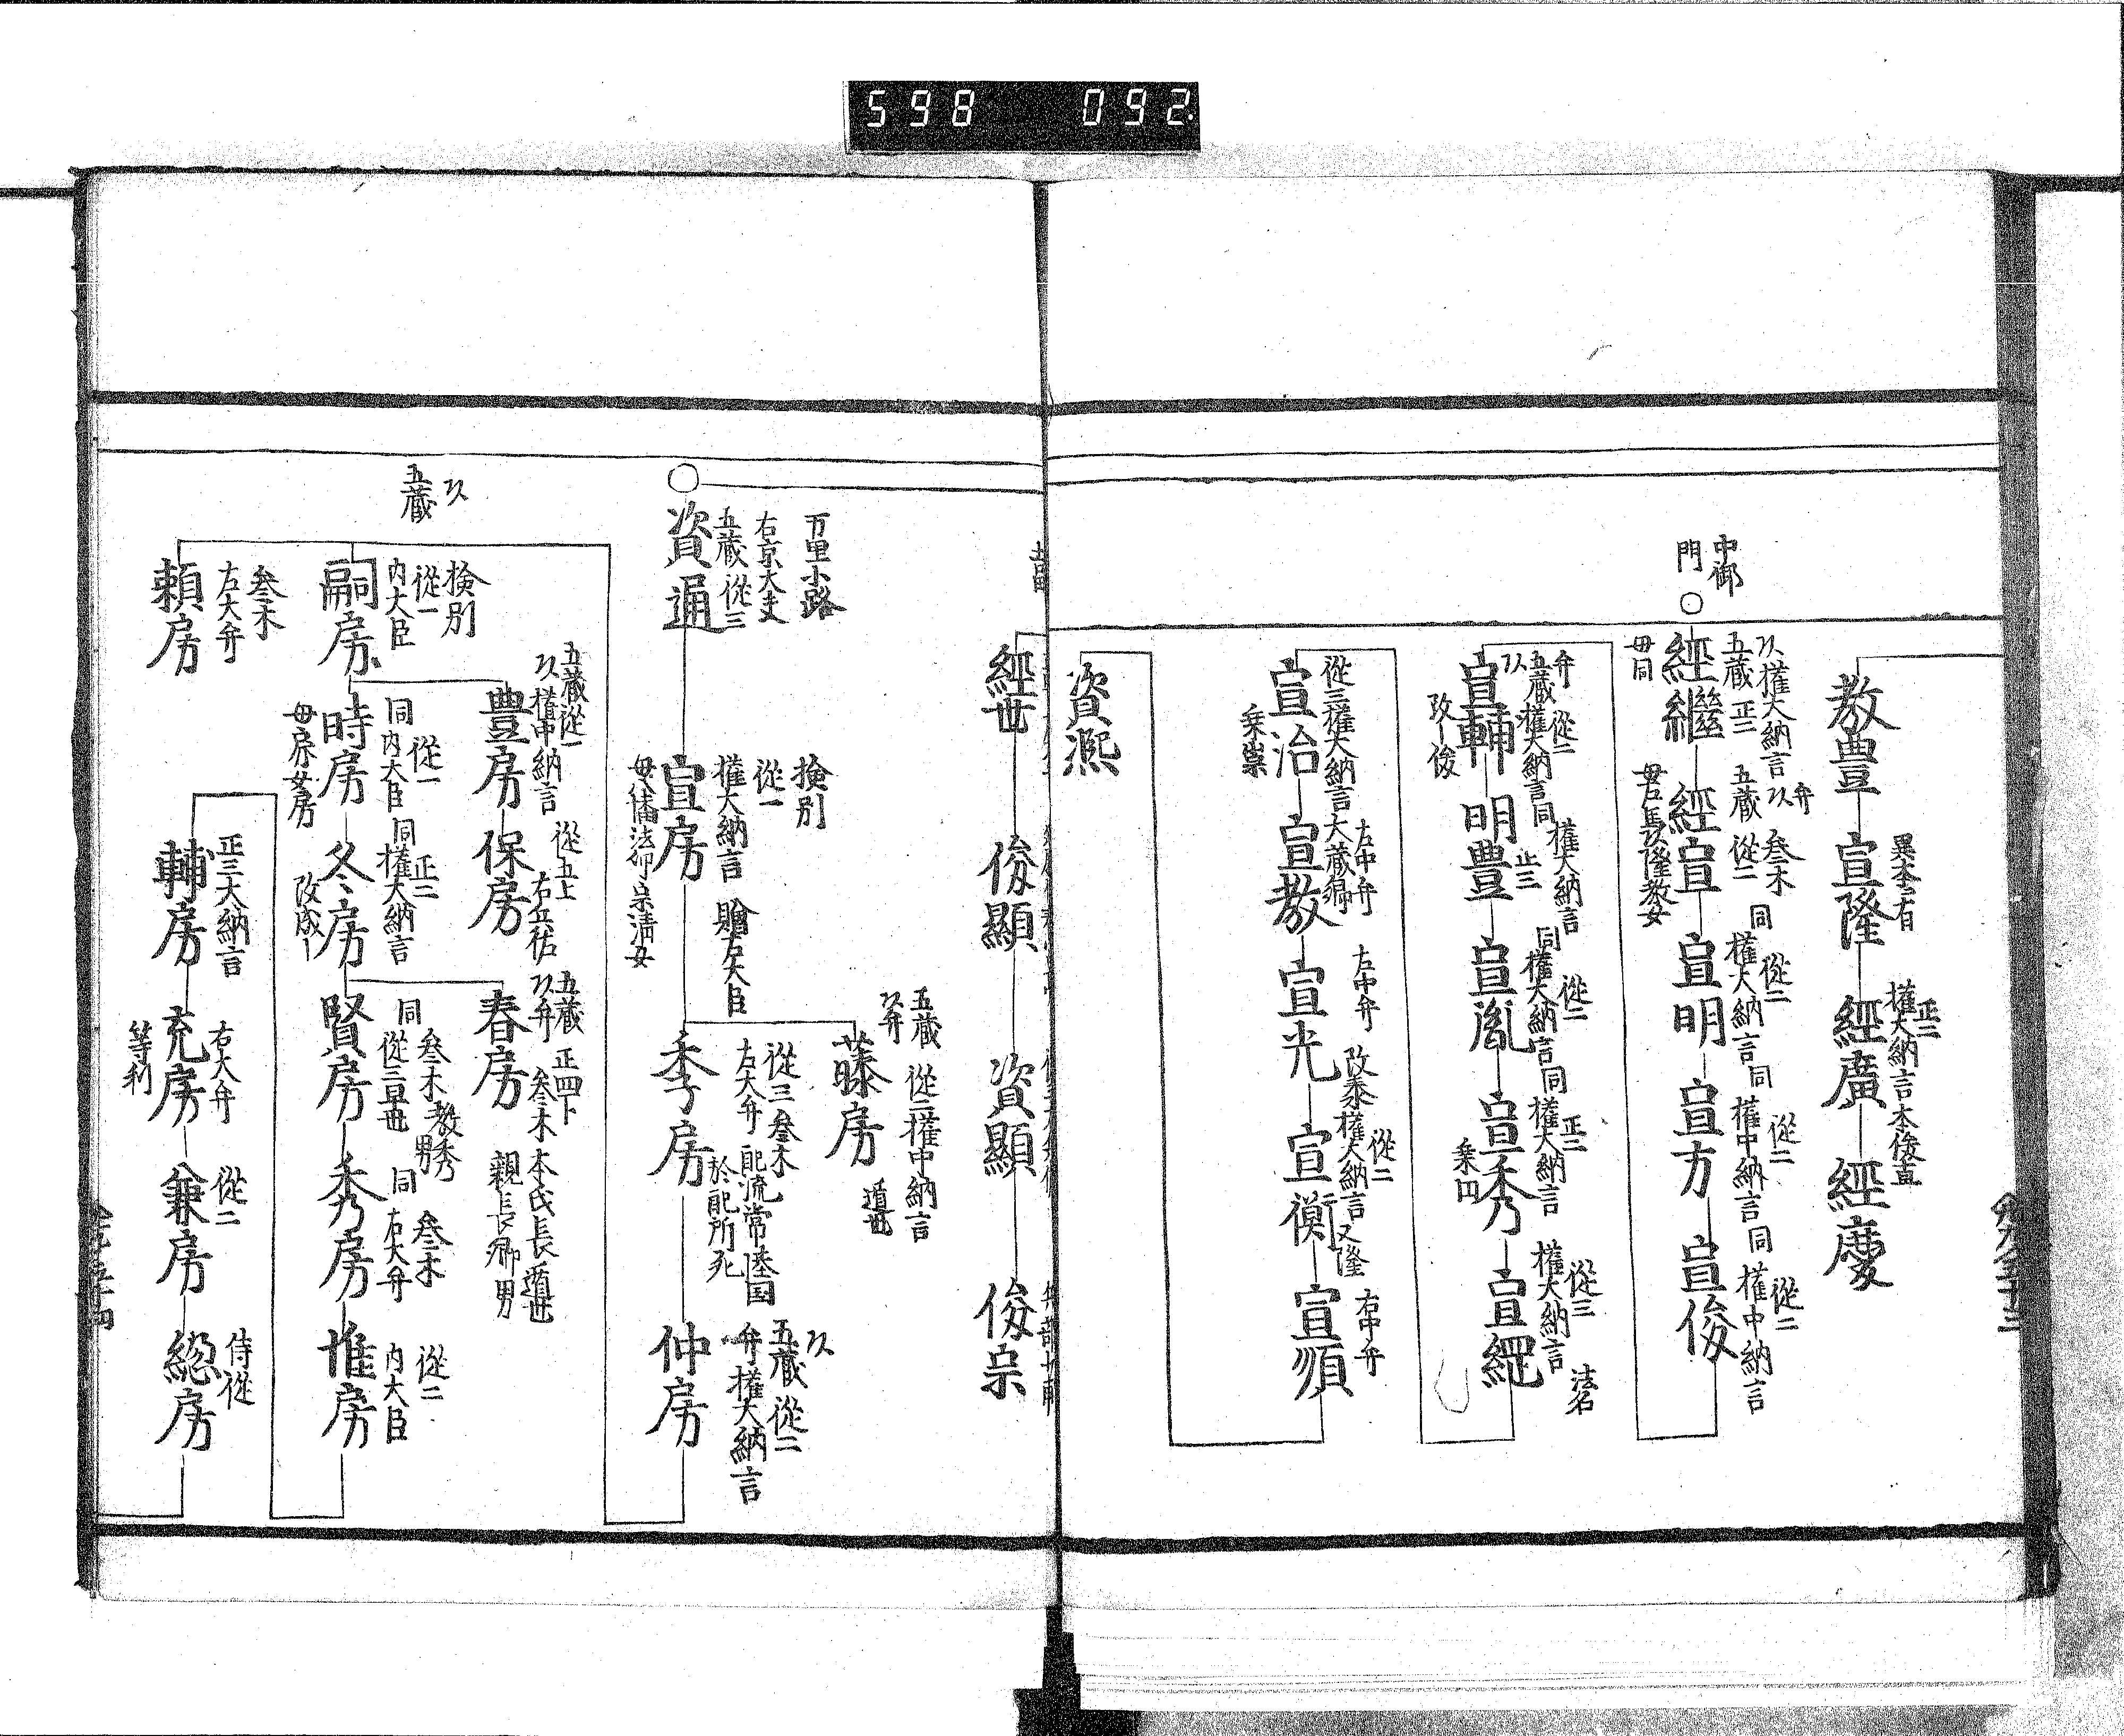 598 092
教豊
異本宣有
宣隆
正二
權大納言本俊直
經廣
經慶
中御
門
經繼
權大納言
五蔵 正二
母同
經宣
弁
叅木
五蔵 從二
宣明
同 從二
權大納言
宣方
同 從二
權中納言
宣俊
同 從二
權中納言
宣輔
弁
五蔵 從二
權大納言
改俊
明豊
同 權大納言
正三
宣胤
同 從二
權大納言
宣秀
同 正二
權大納言
乗円
宣綱
從三
權大納言
法名
宣治
從三權大納言大蔵卿
乗崇
宣教
左中弁
宣光
左中弁
宣衡
改泰 從二
權大納言
又隆
宣順
右中弁
資熈
經世
俊顯
資顯
俊宗
万里小路
資通
右京大夫
五蔵 從三
宣房
検別
從一
權大納言 贈左大臣
藤房
五蔵
弁
從二權中納言
遁世
季房
從三叅木
左大弁 配流常陸国
於配所死
仲房
五蔵 從二
弁 權大納言
五蔵
嗣房
検別
從一
内大臣
賴房
叅木
左大弁
豊房
五蔵從一
權中納言
保房
從五上
右兵佐
時房
同 從一
内大臣
冬房
同 正二
權大納言
改成
春房
五蔵 正四下
弁 叅木本氏長遁世
親長卿男
賢房
同 叅木教秀男
從三早世
秀房
同 叅木
右大弁
惟房
從二
内大臣
輔房
正三大納言
充房
右大弁
等利
兼房
從二
総房
侍從